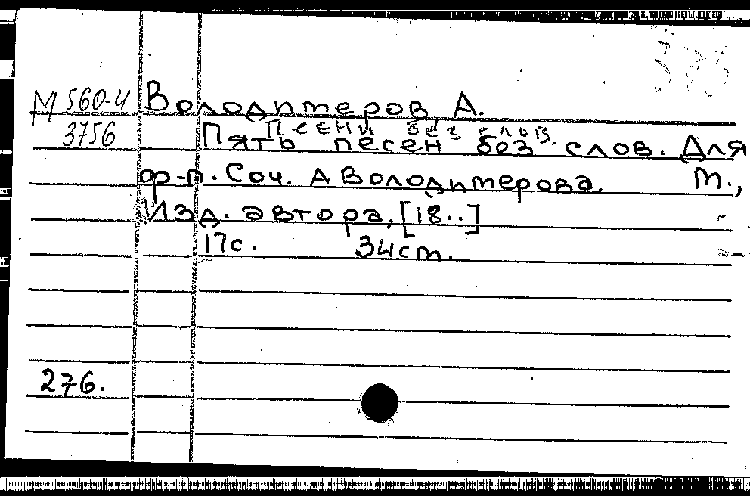 М 560-4 Володимеров А.
Песни без слов
3756 Пять песен без слов. Для
ф-п. Соч. А Володимерова. М.,
Изд. автора, [18..]
17с. 34см.
276.